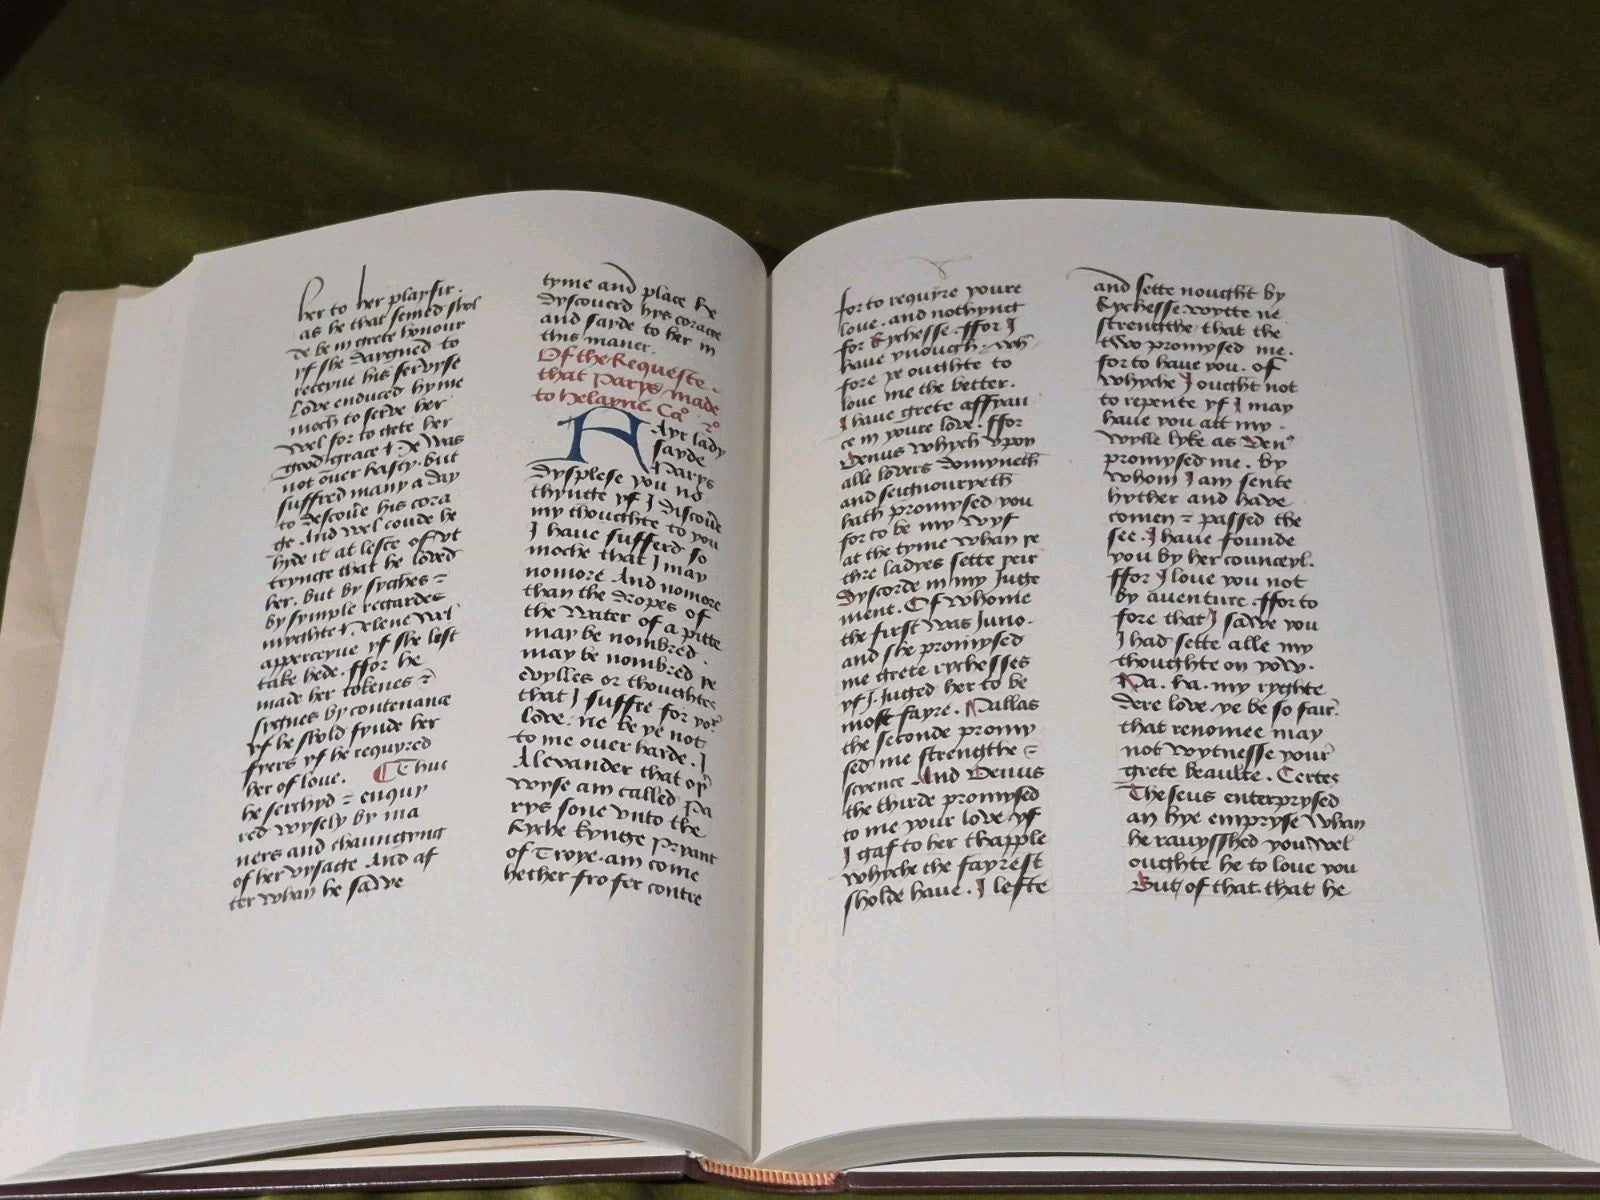 her to her playsir.
as he that semed shol
de be in grete honour
yf she daygned to
receyue his servyse
Love enduced hyme
moch to serve her
wel for to gete her
good grace & he was
not over hasty. but
suffred many a day
to descove his cora
ge. And wel coude he
hyde it at leste of ut
teynge that he loved
her. but by syghes ⁊
by symple regardes
myghte Helene wel
apperceyue yf she list
take hede. ffor he
made her tokenes ⁊
sygnes by contenance
yf he shold fynde her
fyers yf he requyred
her of love. ¶ Thus
he serchyd ⁊ enquy
red wysely by ma
ners and chaungyng
of her vysage And af
ter whan he sawe
tyme and place he
dyscouerd hys corage
and sayde to her in
this maner.
Of the Requeste.
that Parys made
to helayne. Cao 2o
FAyr lady
sayde
Parys
dysplese you no
thynge yf I discove
my thoughte to you
I have sufferd so
moche that I may
nomore And nomore
than the dropes of
the water of a pitte
may be nombred.
may be nombred þe
evylles or thoughtes
that I suffre for yor
love. ne be ye not
to me over harde. I
Alexander that oþ
wyse am called Pa
rys sone vnto the
Ryche kynge Pryant
of Troye. am come
hether fro fer contre
for to requyre youre
love. and nothyng
for Rychesse. ffor I
have ynough. wh
fore ye oughte to
love me the better.
I have grete affyau
ce in youre love. ffor
Venus whych vpon
alle lovers domyneth
and seignouryeth
hath promysed you
for to be my wyf
at the tyme whan þe
thre ladyes sette þeir
dyscorde in my Juge
ment. Of whome
the first was Juno.
and she promysed
me grete rychesses
yf I. Juged her to be
most fayre. Pallas
the seconde promy
sed me strengthe ⁊
scyence. And Venus
the thirde promysed
to me your love yf
I gaf to her thapple
whyche the fayrest
sholde haue. I lefte
and sette nought by
Rychesse. wytte ne
strengthe. that the
two promysed me.
for to have you. of
whyche I ought not
to repente yf I may
have you att my.
wylle lyke as Ven9
promysed me. by
whom I am sente
hyther and have
comen ⁊ passed the
see. I have founde
you by her counceyl.
ffor I love you not
by aventure. ffor to
fore that I sawe you
I had sette alle my
thoughte on yow.
Ha. ha. my ryghte
dere love. ye be so fair.
that renomee may
not wytnesse your
grete beaulte. Certes
Theseus enterprysed
an hye empryse whan
he rauysshed you wel
oughte he to love you
But of that. that he